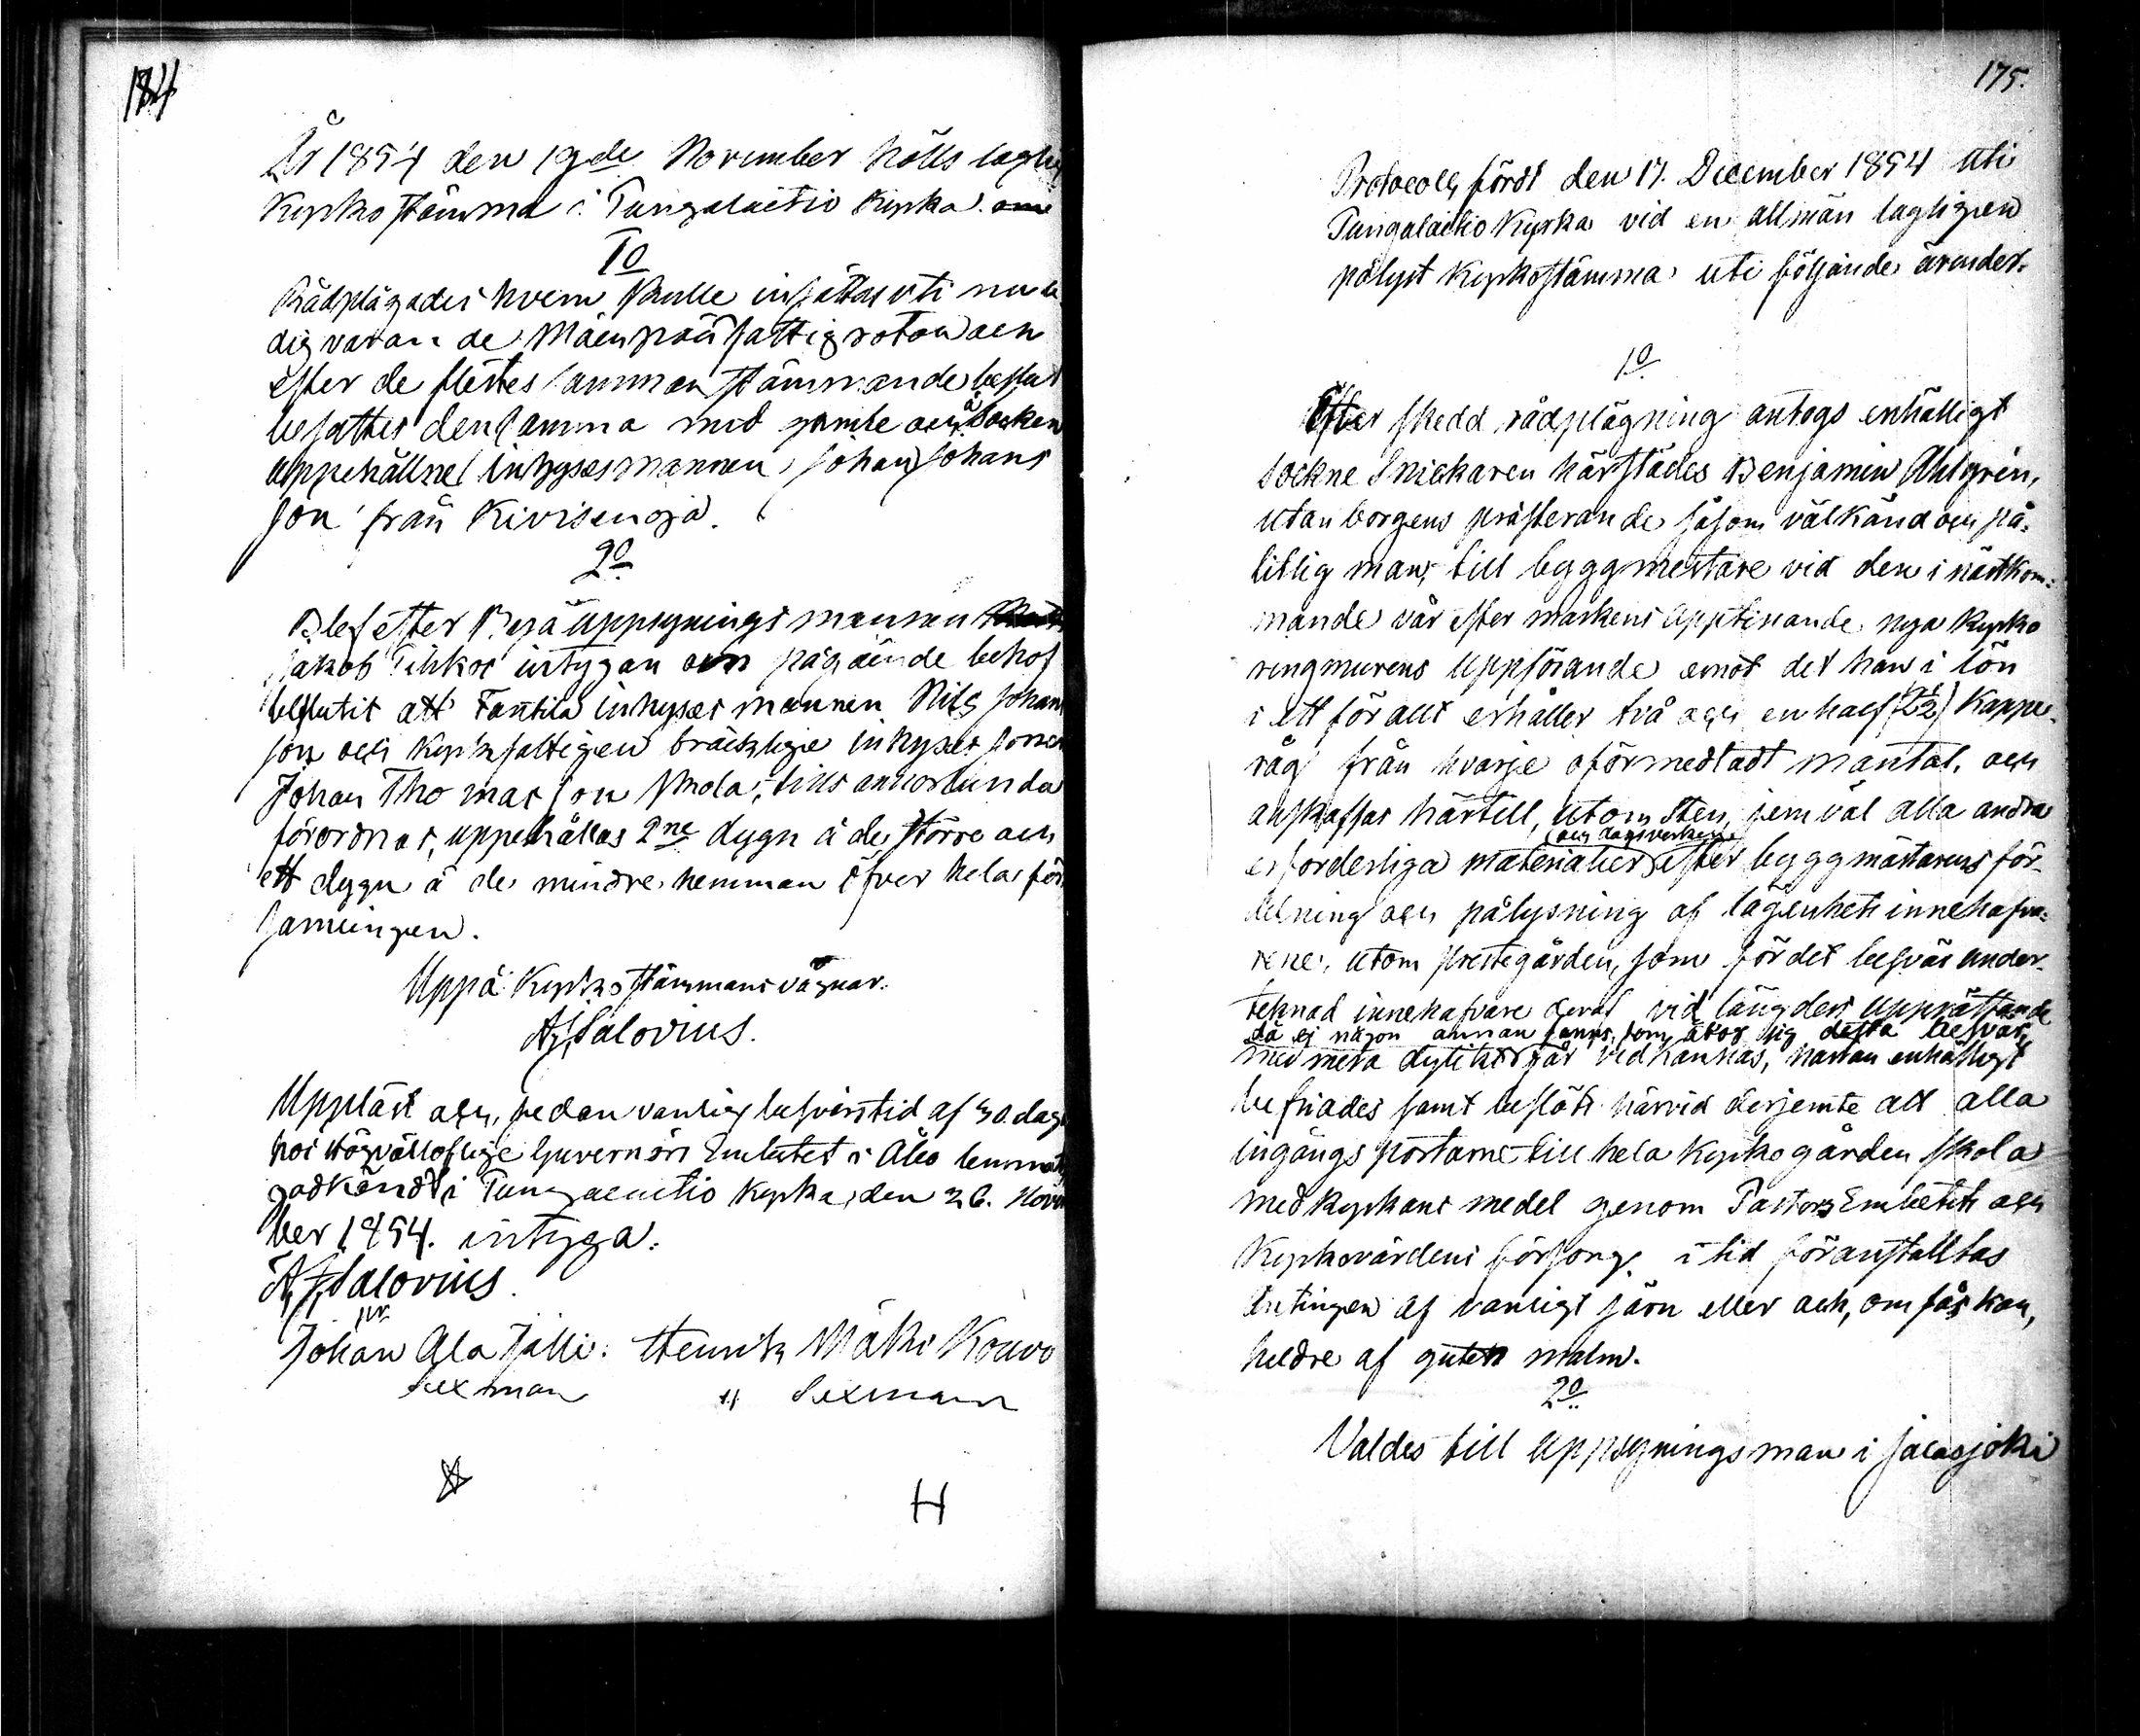 174
År 1854 den 19de November hölls laglig
Kyrko stämma i Tungalaitio Kyrka.
1o
Rådplägades hvem skulle insättas uti nu le
dig varan de Mäenpää fattigrotan och
efter de flestes samman stämmande beslut
besattes densamma med gamle och å Socken
uppehållne inhysesmannen Johan Johans
son från Kivisenoja.
2o
Blef efter Byiä uppsynings mannen
Jakob intygan om pågående behof
beslutit att Fanttila inhyses mannen Nils Johans
son och Kyrkfattigen bräcklige inhyses sonen
Johan Thomas son Skola, tills annorlunda
förordnas, uppehållas 2ne dygn å de större och
ett dygn å de mindre hemman öfver hela för
samlingen.
Uppå Kyrko stämmans vägnar.
A. F. Salovius.
Uppläst och, sedan vanlig besvärstid af 30. dag
hos Högvälloflige Guvernörs Embetet i Åbo lemnats
godkändt i Tungalaitio Kyrka, den 26. Novem
ber 1854. intyga:
A. F. Salovius.
pr.
Johan Ala Jilli. Henrik Mäki Kouvo
Sexman " Sexman
H
175.
Protocoll, fördt den 17. December 1854 uti
Tungalaitio Kyrka vid en allmän lagligen
pålyst Kyrkostämma uti följande ärender.
1o
Efter skedd rådplägning antogs enhälligt
Sockne Snickaren härstädes Benjamin Ahlgrén,
utan borgens presterande såsom välkänd och på-
litlig man, till byggmestare vid den i nästkom-
mande vår efter markens upptinande nya Kyrko
ringmurens uppförande emot det han i lön
i ett för allt erhåller två och en half (2 1/2) Kappe
råg från hvarje oförmedladt mantal, och
anskaffas härtill, utom sten, jemväl alla andra
(och dagsverken)
erforderliga materialier efter byggmästarens för-
delning och pålysning af lägenhets innehafva-
rene, utom prestegården, som för det besvär under-
teknad innehafvare deraf vid längders upprättande
då ej någon annan fanns, som åtog sig detta besvär,
med mera dylikt går vidhännas, nästan enhälligt
befriades samt beslöts härvid derjemte att alla
ingångs portarne till hela Kyrkogården skola
med Kyrkans medel genom Pastors Embetets och
Kyrkovärdens försorg i tid föranstaltas
antingen af vanligt järn eller och, om fås kan,
heldre af guten malm.
2o
Valdes till uppsyningsman i Jalasjoki